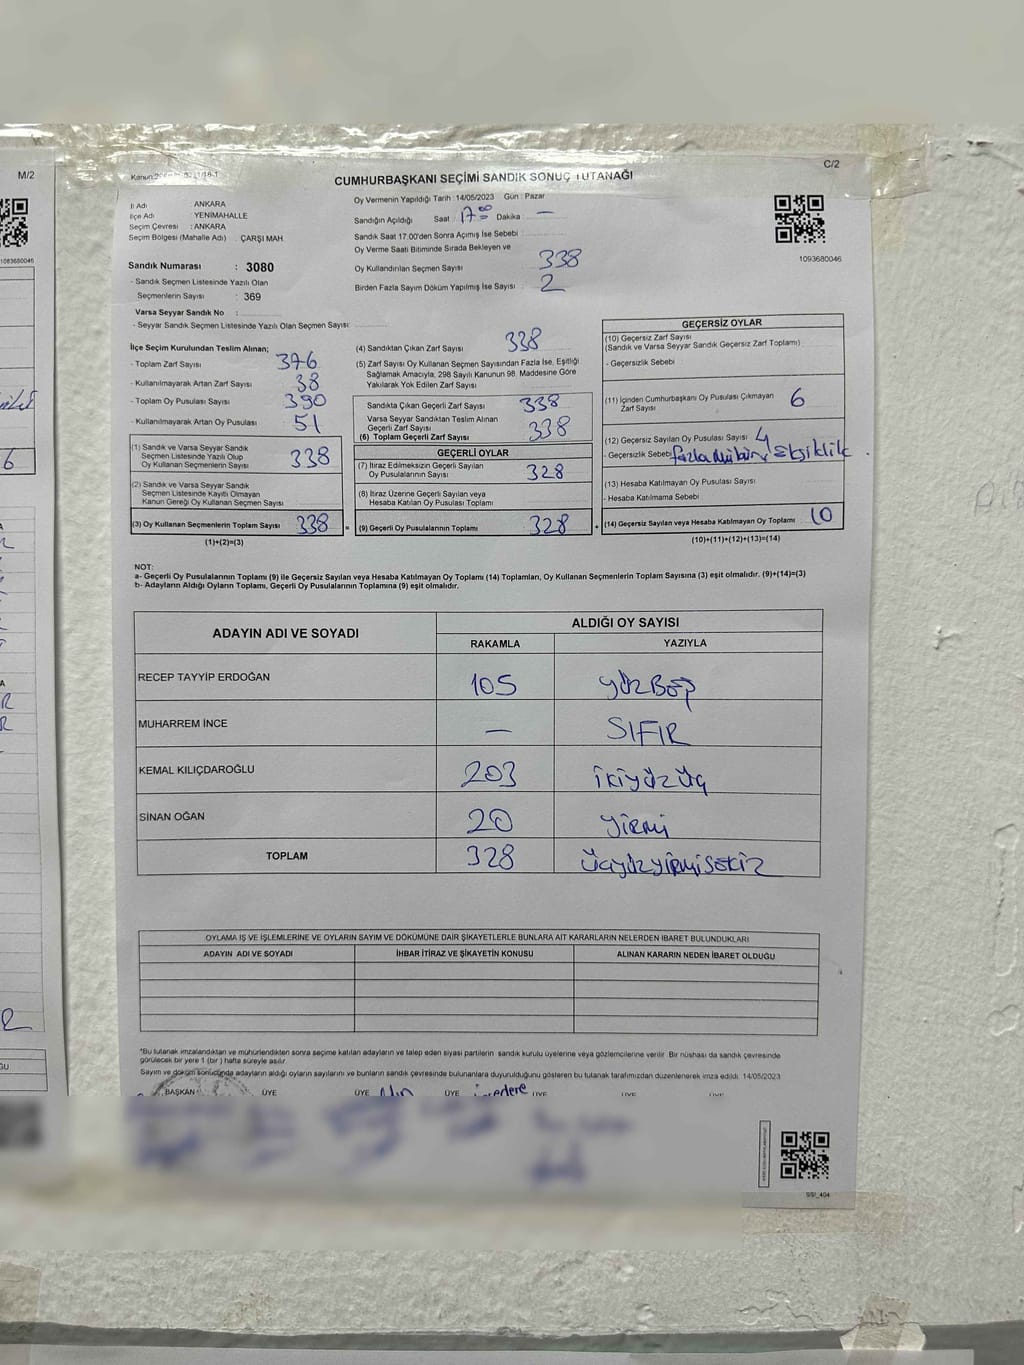 M/2
C/2
CUMHURBAŞKANI SEÇİMİ SANDIK SONUÇ TUTANAĞI
İl Adı ANKARA
İlçe Adı YENİMAHALLE
Seçim Çevresi : ANKARA
Seçim Bölgesi (Mahalle Adı) : ÇARŞI MAH.
Sandık Numarası : 3080
- Sandık Seçmen Listesinde Yazılı Olan
Seçmenlerin Sayısı : 369
Varsa Seyyar Sandık No :
- Seyyar Sandık Seçmen Listesinde Yazılı Olan Seçmen Sayısı:
Oy Vermenin Yapıldığı Tarih : 14/05/2023 Gün : Pazar
Sandığın Açıldığı Saat : 17 00 Dakika : —
Sandık Saat 17.00'den Sonra Açımış İse Sebebi :
Oy Verme Saati Bitiminde Sırada Bekleyen ve
Oy Kullandırılan Seçmen Sayısı : 338
Birden Fazla Sayım Döküm Yapılmış İse Sayısı : 2
1093680046
1083680046
İlçe Seçim Kurulundan Teslim Alınan;
- Toplam Zarf Sayısı : 376
- Kullanılmayarak Artan Zarf Sayısı : 38
- Toplam Oy Pusulası Sayısı : 390
- Kullanılmayarak Artan Oy Pusulası : 51
(1) Sandık ve Varsa Seyyar Sandık
Seçmen Listesinde Yazılı Olup
Oy Kullanan Seçmenlerin Sayısı 338
(2) Sandık ve Varsa Seyyar Sandık
Seçmen Listesinde Kayıtlı Olmayan
Kanun Gereği Oy Kullanan Seçmenlerin Sayısı
(3) Oy Kullanan Seçmenlerin Toplam Sayısı 338 =
(1)+(2)=(3)
(4) Sandıktan Çıkan Zarf Sayısı 338
(5) Zarf Sayısı Oy Kullanan Seçmen Sayısından Fazla İse, Eşitliği
Sağlamak Amacıyla, 298 Sayılı Kanunun 98. Maddesine Göre
Yakılarak Yok Edilen Zarf Sayısı
Sandıkta Çıkan Geçerli Zarf Sayısı 338
Varsa Seyyar Sandıktan Teslim Alınan
Geçerli Zarf Sayısı
(6) Toplam Geçerli Zarf Sayısı 338
GEÇERLİ OYLAR
(7) İtiraz Edilmeksizin Geçerli Sayılan
Oy Pusulalarının Sayısı 328
(8) İtiraz Üzerine Geçerli Sayılan veya
Hesaba Katılan Oy Pusulası Toplamı
(9) Geçerli Oy Pusulalarının Toplamı 328 +
GEÇERSİZ OYLAR
(10) Geçersiz Zarf Sayısı
(Sandık ve Varsa Seyyar Sandık Geçersiz Zarf Toplamı)
- Geçersizlik Sebebi
(11) İçinden Cumhurbaşkanı Oy Pusulası Çıkmayan
Zarf Sayısı 6
(12) Geçersiz Sayılan Oy Pusulası Sayısı 4
- Geçersizlik Sebebi fazla Mühür, Eksiklik
(13) Hesaba Katılmayan Oy Pusulası Sayısı
- Hesaba Katılmama Sebebi
(14) Geçersiz Sayılan veya Hesaba Katılmayan Oy Toplamı 10
(10)+(11)+(12)+(13)=(14)
NOT:
a- Geçerli Oy Pusulalarının Toplamı (9) ile Geçersiz Sayılan veya Hesaba Katılmayan Oy Toplamı (14) Toplamları, Oy Kullanan Seçmenlerin Toplam Sayısına (3) eşit olmalıdır. (9)+(14)=(3)
b- Adayların Aldığı Oyların Toplamı, Geçerli Oy Pusulalarının Toplamına (9) eşit olmalıdır.
ADAYIN ADI VE SOYADI ALDIĞI OY SAYISI
RAKAMLA YAZIYLA
RECEP TAYYİP ERDOĞAN 105 yüzBeş
MUHARREM İNCE — SIFIR
KEMAL KILIÇDAROĞLU 203 ikiyüzüç
SİNAN OĞAN 20 yirmi
TOPLAM 328 üçyüzyirmisekiz
OYLAMA İŞ VE İŞLEMLERİNE VE OYLARIN SAYIM VE DÖKÜMÜNE DAİR ŞİKAYETLERLE BUNLARA AİT KARARLARIN NELERDEN İBARET BULUNDUKLARI
ADAYIN ADI VE SOYADI İHBAR İTİRAZ VE ŞİKAYETİN KONUSU ALINAN KARARIN NEDEN İBARET OLDUĞU
*Bu tutanak imzalandıktan ve mühürlendikten sonra seçime katılan adayların ve talep eden siyasi partilerin sandık kurulu üyelerine veya gözlemcilerine verilir. Bir nüshası da sandık çevresinde
görülecek bir yere 1 (bir) hafta süreyle asılır.
Sayım ve döküm sonucunda adayların aldığı oyların sayılarını ve bunların sandık çevresinde bulunanlara duyurulduğunu gösteren bu tutanak tarafımızdan düzenlenerek imza edildi. 14/05/2023
BAŞKAN ÜYE ÜYE ÜYE ÜYE ÜYE ÜYE
SSI_404